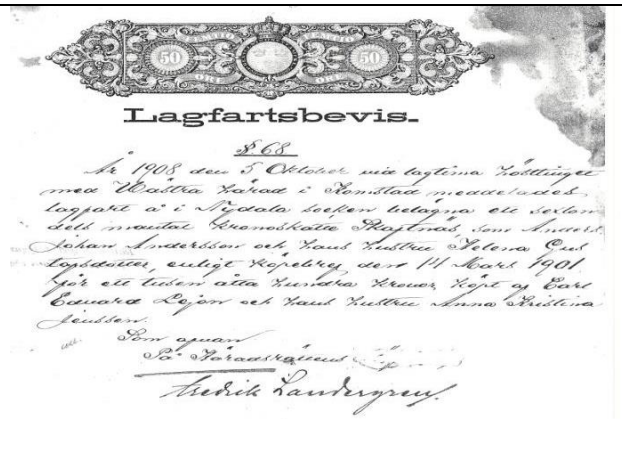 50 50
ÖRE ÖRE
Lagfartsbevis.
§ 68
År 1908 den 5 Oktober vid lagtima hösttinget
med Wästra härad i Komstad meddelades
lagfart å i Nydala socken belägna ett sexton
dels mantal Kronoskatte Skajtnäs, som Anders
Johan Andersson och hans hustru Helena Gus
tafsdotter, enligt köpebref den 14 Mars 1901
för ett tusen åtta hundra kronor, köpt af Carl
Edvard Lejon och hans hustru Anna Kristina
Jonsson.
Som ofvan
På Häradsrättens
Fredrik Landergren